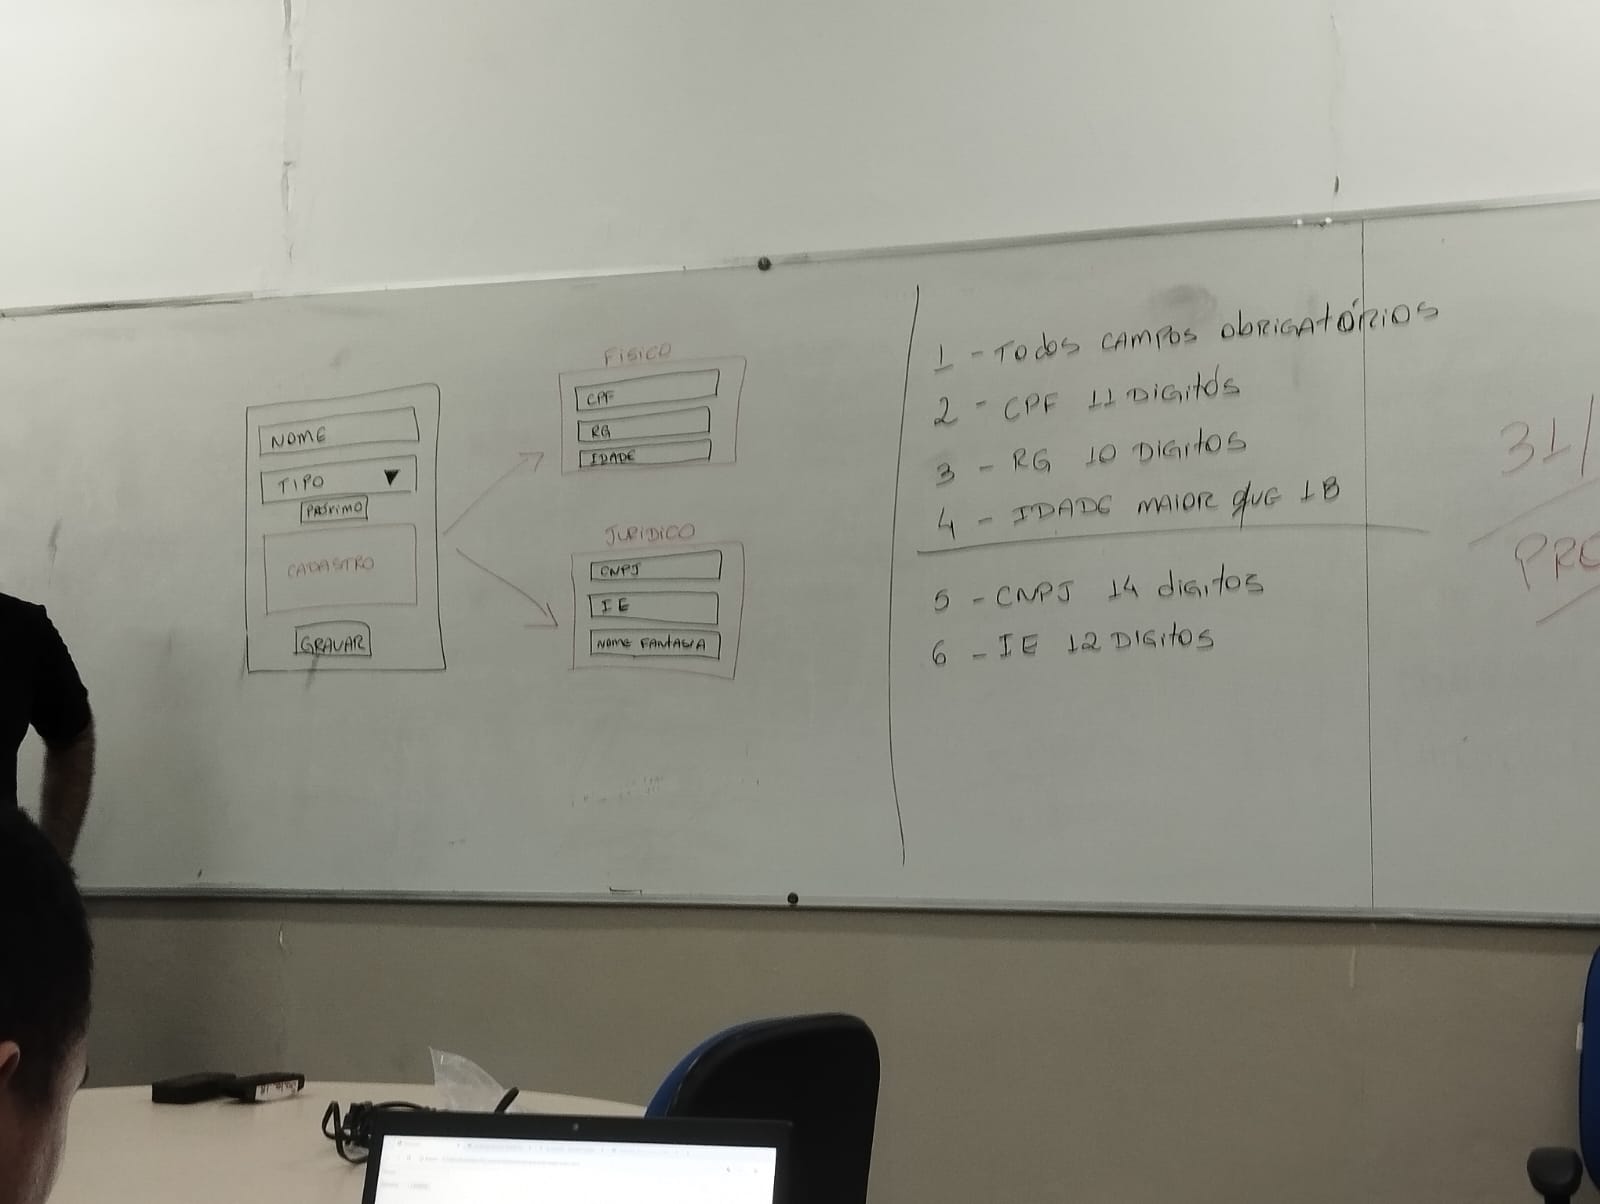 NOME
TIPO
PRÓXIMO
CADASTRO
GRAVAR
FISICO
CPF
RG
IDADE
JURIDICO
CNPJ
IE
NOME FANTASIA
1 - Todos CAMPOS ObRIGAtÓRIOS
2 - CPF 11 DIGitOS
3 - RG 10 DIGItOS
4 - IDADE MAIOR QUE 18
5 - CNPJ 14 digitos
6 - IE 12 DIGItos
31/
PRO